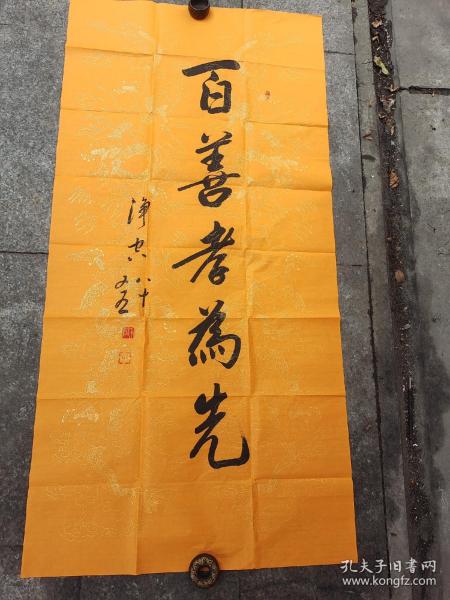 百善孝為先
淨空八十
又五
孔夫子旧书网
www.kongfz.com